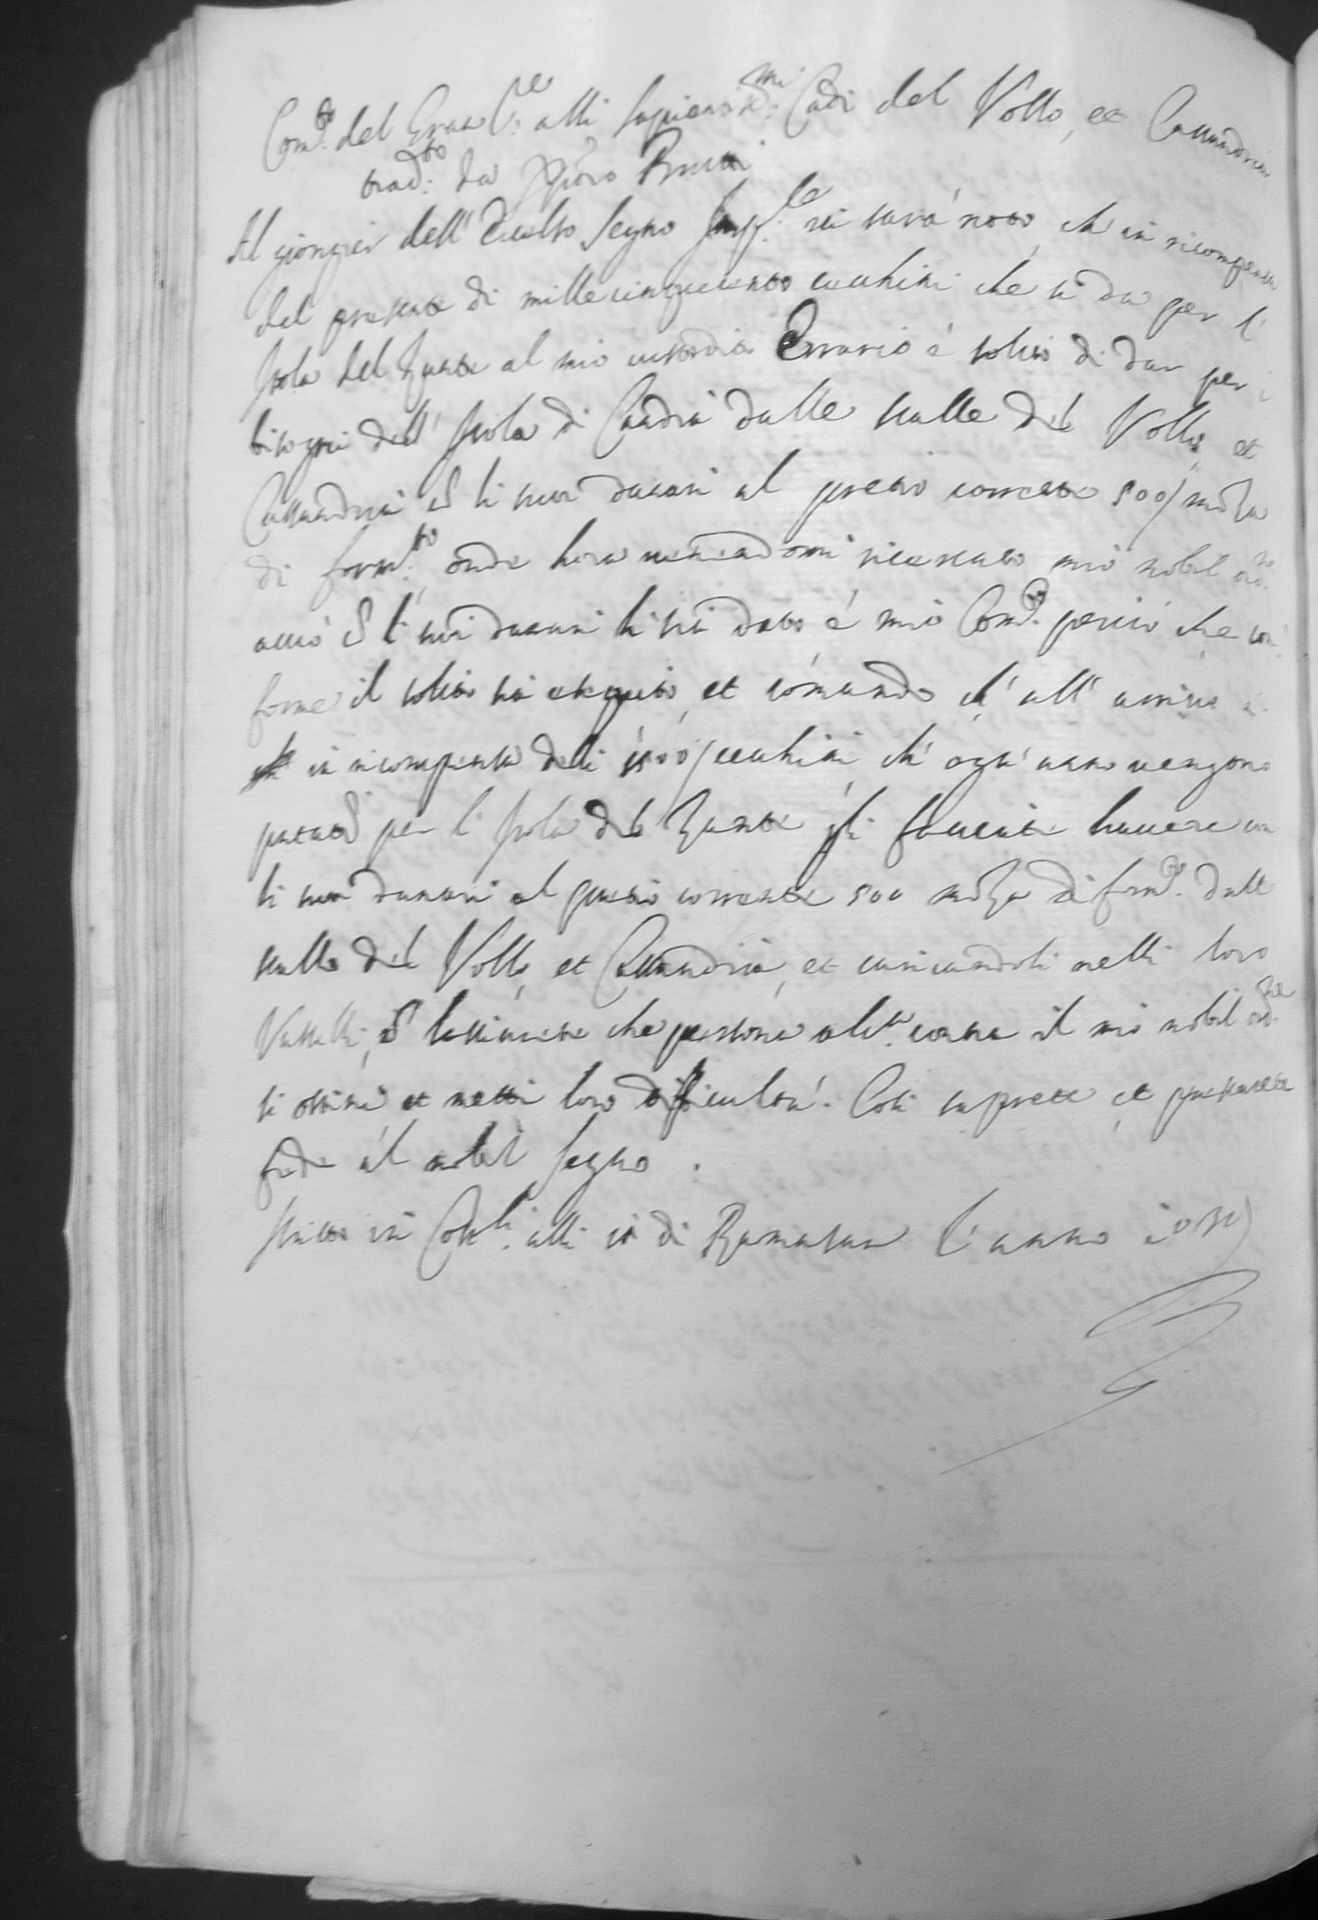 Com.to del Gran S.re alli Sapientiss.mi Cadi del Vollo, et Cassandria
trad.to da
Al gionger dell' Eccelso Segno Imp.le vi sarà noto, ch' in ricompensa
del presente di mille cinquecento cecchini che si da per l'
Isola del Zante al mio custodito Errario è solito di dar per i
bisogni dell' Isola di Candia dalle scalle del Vollo, et
Cassandria con li suoi danari al precio corrente 500/ moza
di form.to onde hora essendomi ricercato mio nobil ord.ne
acciò con li suoi danari li sia dato è mio Com.to perciò che con
forme il solito sia esequito, et comando ch' all' arrivo
in ricompensa delli 1500/ cecchini, ch' ogn' anno vengono
pagati per l' Isola del Zante gli facciate havere con
li suoi danari al precio corrente 500 moza di form.to dalle
scalle del Vollo, et Cassandria, et caricandoli nelli loro
Vasselli, non lassiarete che persona alc.a contra il mio nobil ord.ne
si ostini et metti loro difficoltà. Così saprete et prestarete
fede al nobil Segno.
Scritto in Const.li alli di Ramasan l' anno